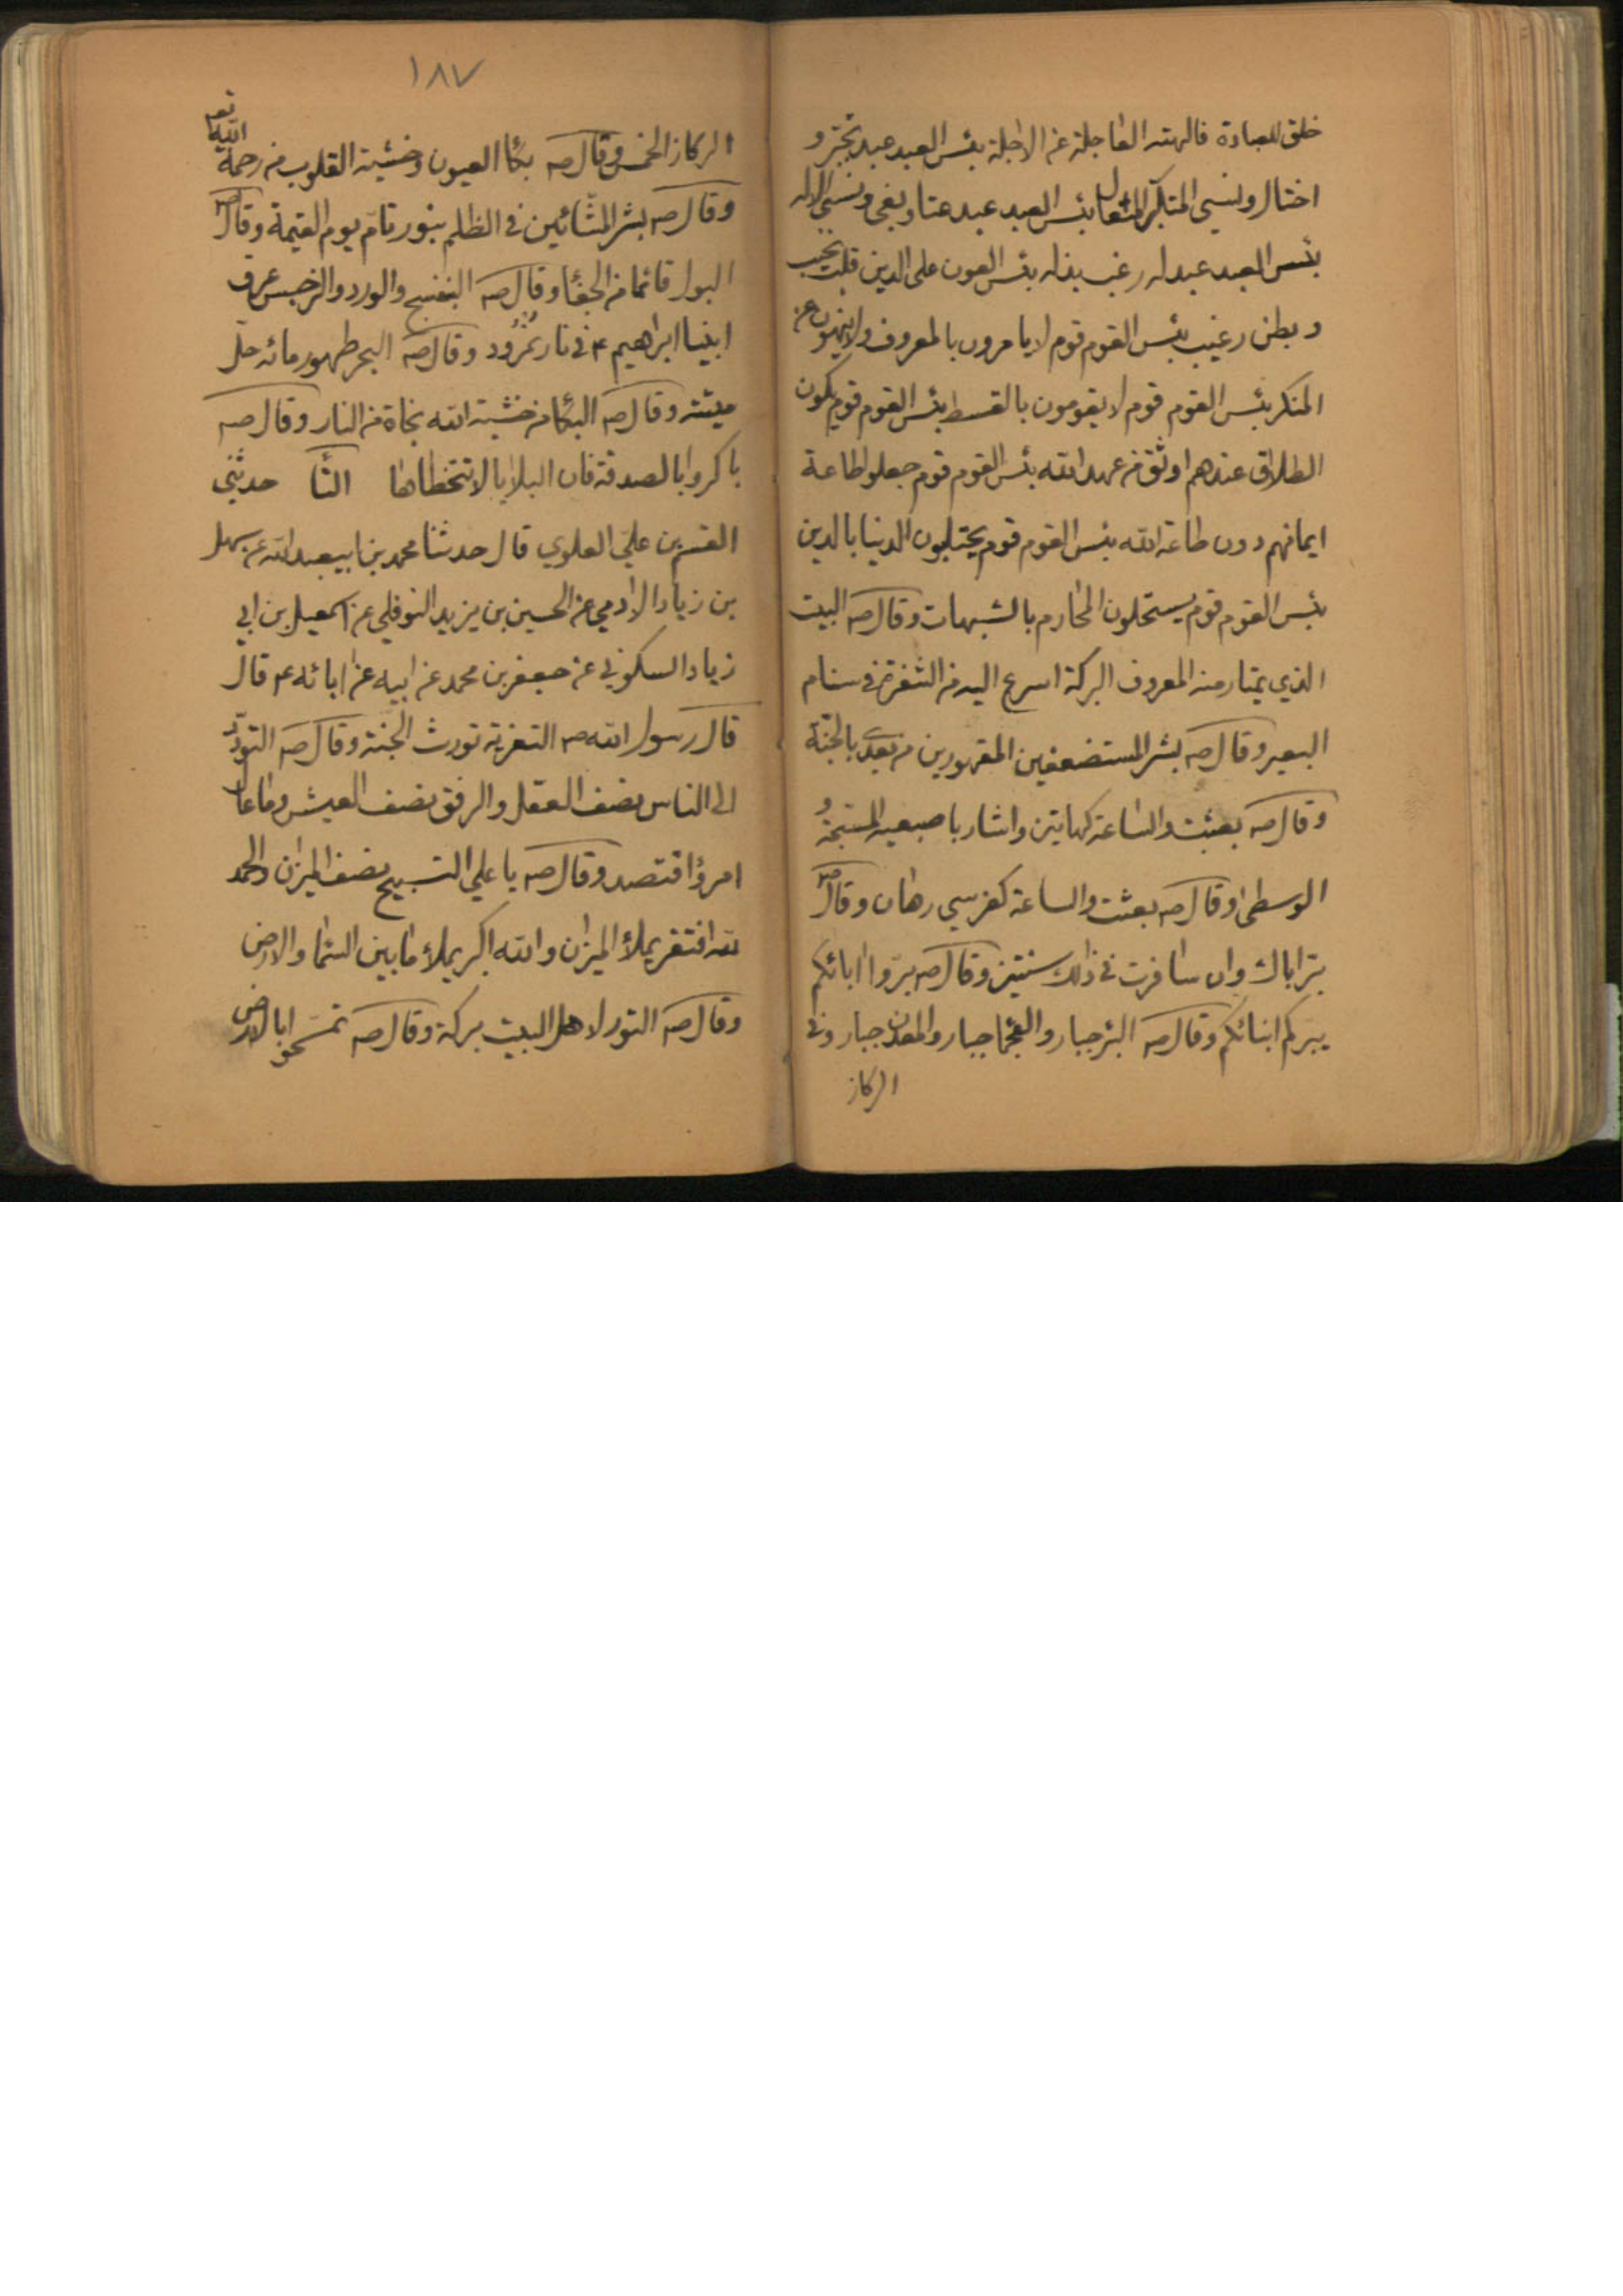 خلق للعبادة فالهته العاجلة عن الاجلة بئس العبد عبد تجبّر و
اختال ونسي المتكبّر المتعال بئس العبد عبد عتا وبغى ونسي الاله
بئس العبد عبد له رغب يذله بئس العون على الدين قلب نخيب
و بطن رغيب بئس القوم قوم لا يامرون بالمعروف ولا ينهون عن
المنكر بئس القوم قوم لا يقومون بالقسط بئس القوم قوم يكون
الطلاق عندهم اوثق من عهد الله بئس القوم قوم جعلوا طاعة
ايمانهم دون طاعة الله بئس القوم قوم يختلبون الدنيا بالدين
بئس القوم قوم يستحلون المحارم بالشبهات وقال صه البيت
الذي يمتار منه المعروف البركة اسرع اليه من الشفرة في سنام
البعير وقال صه بشر المستضعفين المقهورين من بعدي بالجنة
وقال صه بعثت والساعة كهاتين واشار باصبعيه المسبّحة و
الوسطى وقال صه بعثت والساعة كفرسي رهان وقال صه
برّ اباك وان سافرت في ذلك سنتين وقال صه برّوا ابائكم
يبركم ابنائكم وقال صه البئر جبار والعجما جبار والمعدن جبار وفي
الركاز
١٨٧
الركاز الخمس وقال صه بكاء العيون وخشية القلوب من رحمة الله تعـ
وقال صه بشر المشّائين في الظلم بنور تامّ يوم القيمة وقال صه
البول قائما من الجفاء وقال صه البنفسج والورد والنرجس عرق
ابنيا ابراهيم ع في نار نمرود وقال صه البحر طهور مائه حلّ
ميتته وقال صه البكا من خشية الله نجاة من النار وقال صه
باكروا بالصدقة فان البلايا لا تتخطاها التّا حدثني
القسم بن علي العلوي قال حدثنا محمد بن ابيعبد الله عن سهل
بن زياد الادمي عن الحسين بن يزيد النوفلي عن اسمعيل بن ابي
زياد السكوني عن جعفر بن محمد عن ابيه عن ابائه ع قال
قال رسول الله ص التعزية تورث الجنة وقال صه التودّد
الى الناس نصف العقل والرفق نصف العيش وما عال
امرؤ اقتصد وقال صه يا علي التسبيح نصف الميزان والحمد
لله يملأ الميزان والله اكبر يملأ ما بين السّما والارض
وقال صه التور لاهل البيت بركة وقال صه تمسّحوا بالارض